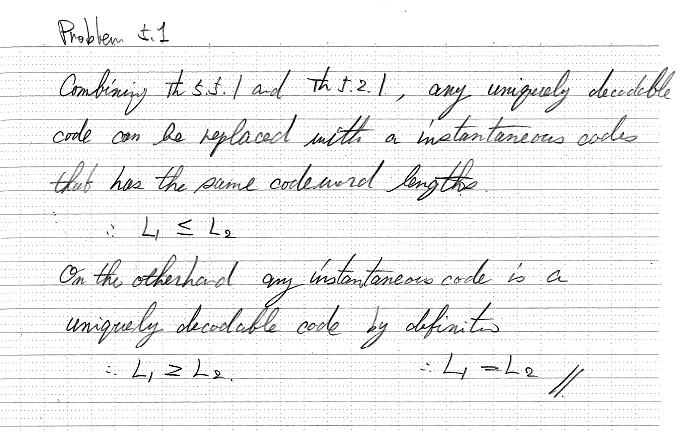 Problem 5.1
Combining Th 5.5.1 and Th 5.2.1, any uniquely decodable
code can be replaced with a instantaneous codes
that has the same codeword lengths.
∴ L₁ ≤ L₂
On the otherhand any instantaneous code is a
uniquely decodable code by definition
∴ L₁ ≥ L₂. ∴ L₁ = L₂ //